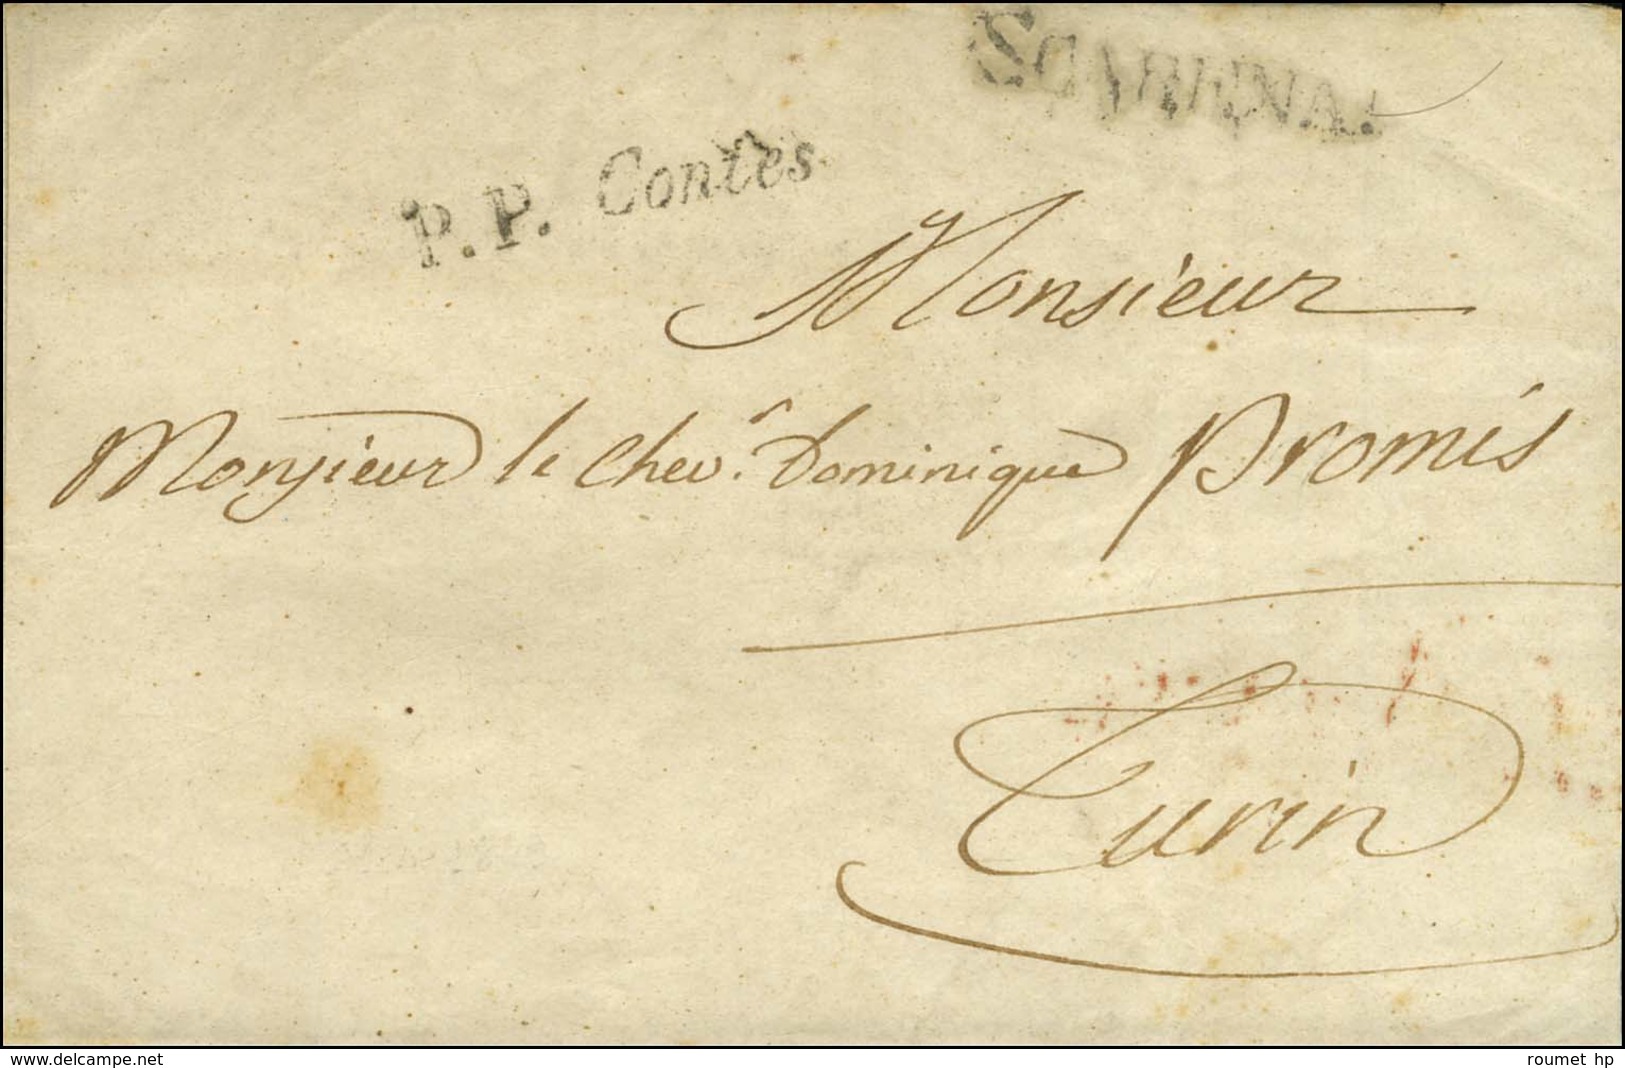 SCARENA.
P.P. Contes
Monsieur
Monsieur le Chev.r Dominique Promis
Turin
www.delcampe.net
roumet hp